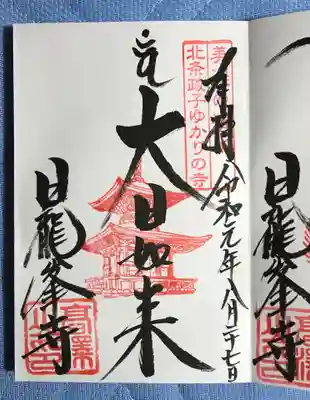 奉拝
令和元年八月二十七日
北条政子ゆかりの寺
大日如来
日龍峯寺
高澤
日龍峯寺